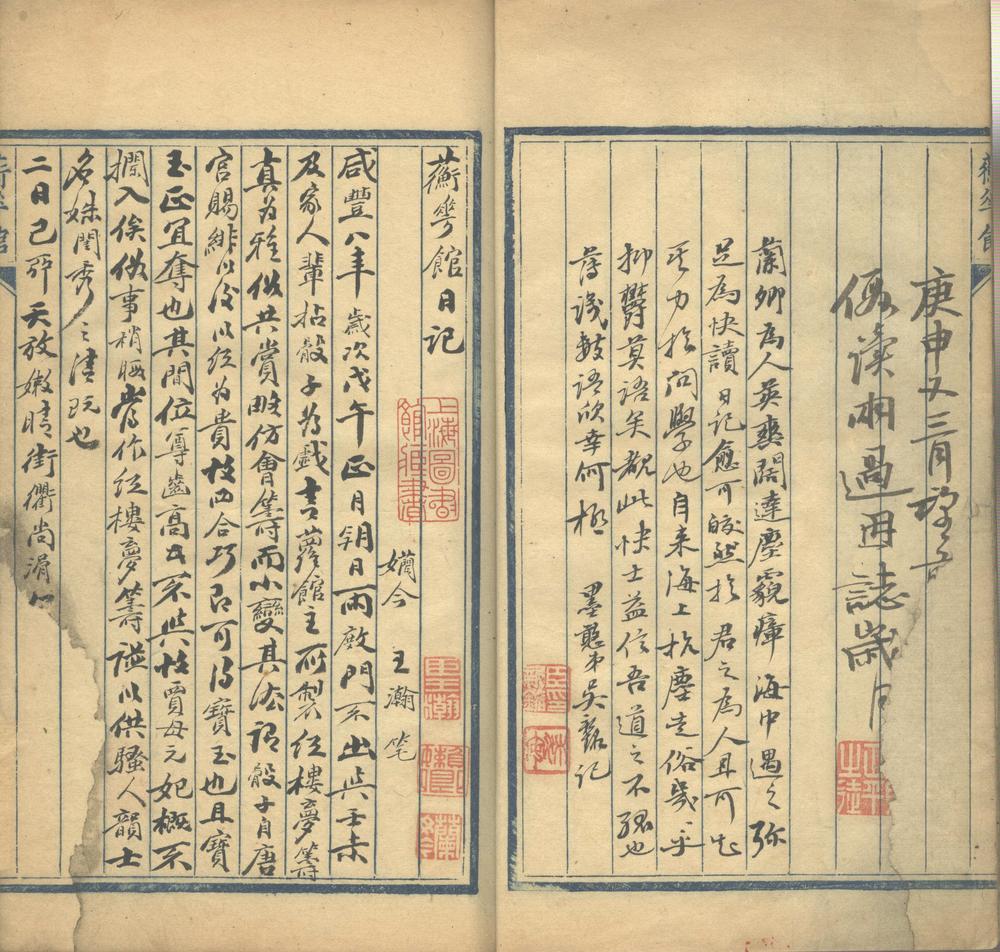 庚申又三月
假讀兩過因誌歲月
蘭卿為人英爽闊達塵窺瘴海中遇之弥
足為快讀日記愈可皎然於君之為人且可知
其力於問學也自来海上抗塵走俗幾乎
抑鬱莫語矣覩此快士益信吾道之不孤也
薄識數語欣幸何極
墨憨弟吳 記
蘅花館日記
嬾今王瀚筆
咸豐八年歲次戊午正月朔日雨廠門不出與壬叔
及家人輩拈骰子為戲吉蘿館主所製紅樓夢籌
真為雅俗共賞略仿會籌而小變其法謂骰子自唐
官賜緋以後以紅為貴故四合巧即可得寶玉也且寶
玉正宜奪也其間位尊齒高者不與故賈母元妃概不
攔入俟俗事稍暇當作紅樓夢籌譜以供騷人韻士
名姝閨秀之清玩也
二日己卯天放嫩晴街衢尚滑
上海圖書館藏書
王瀚